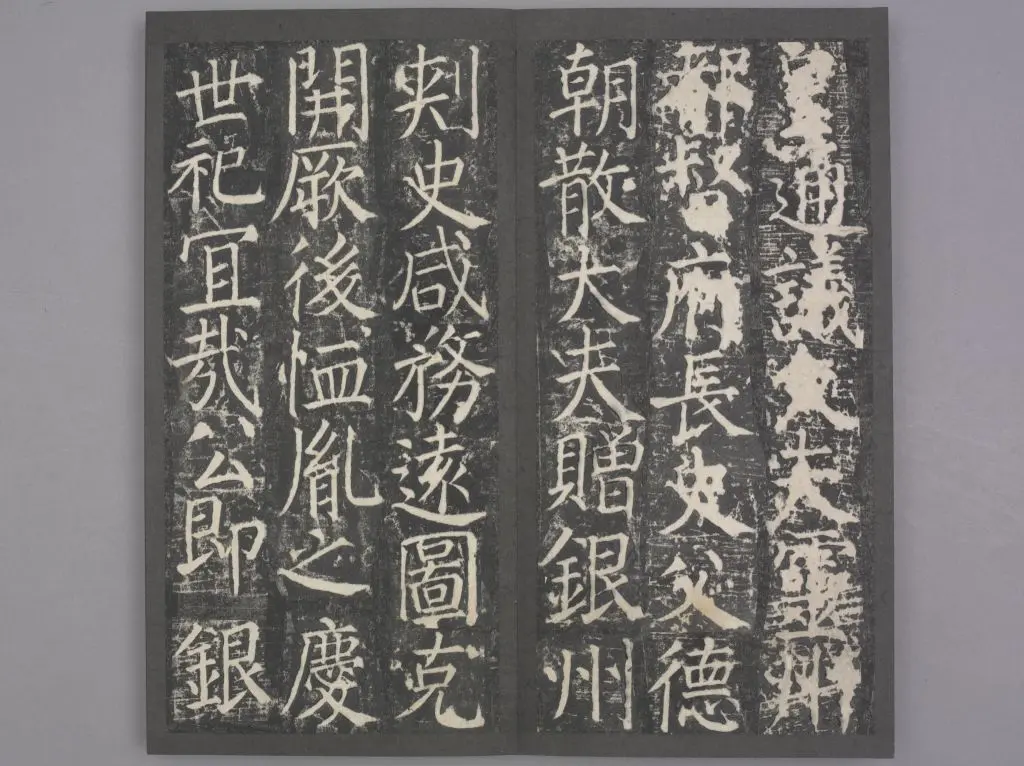 皇通議大夫靈州
都督府長史父德
朝散大夫贈銀州
刾史咸務遠圖克
開厥後恤胤之慶
世祀宜哉公即銀